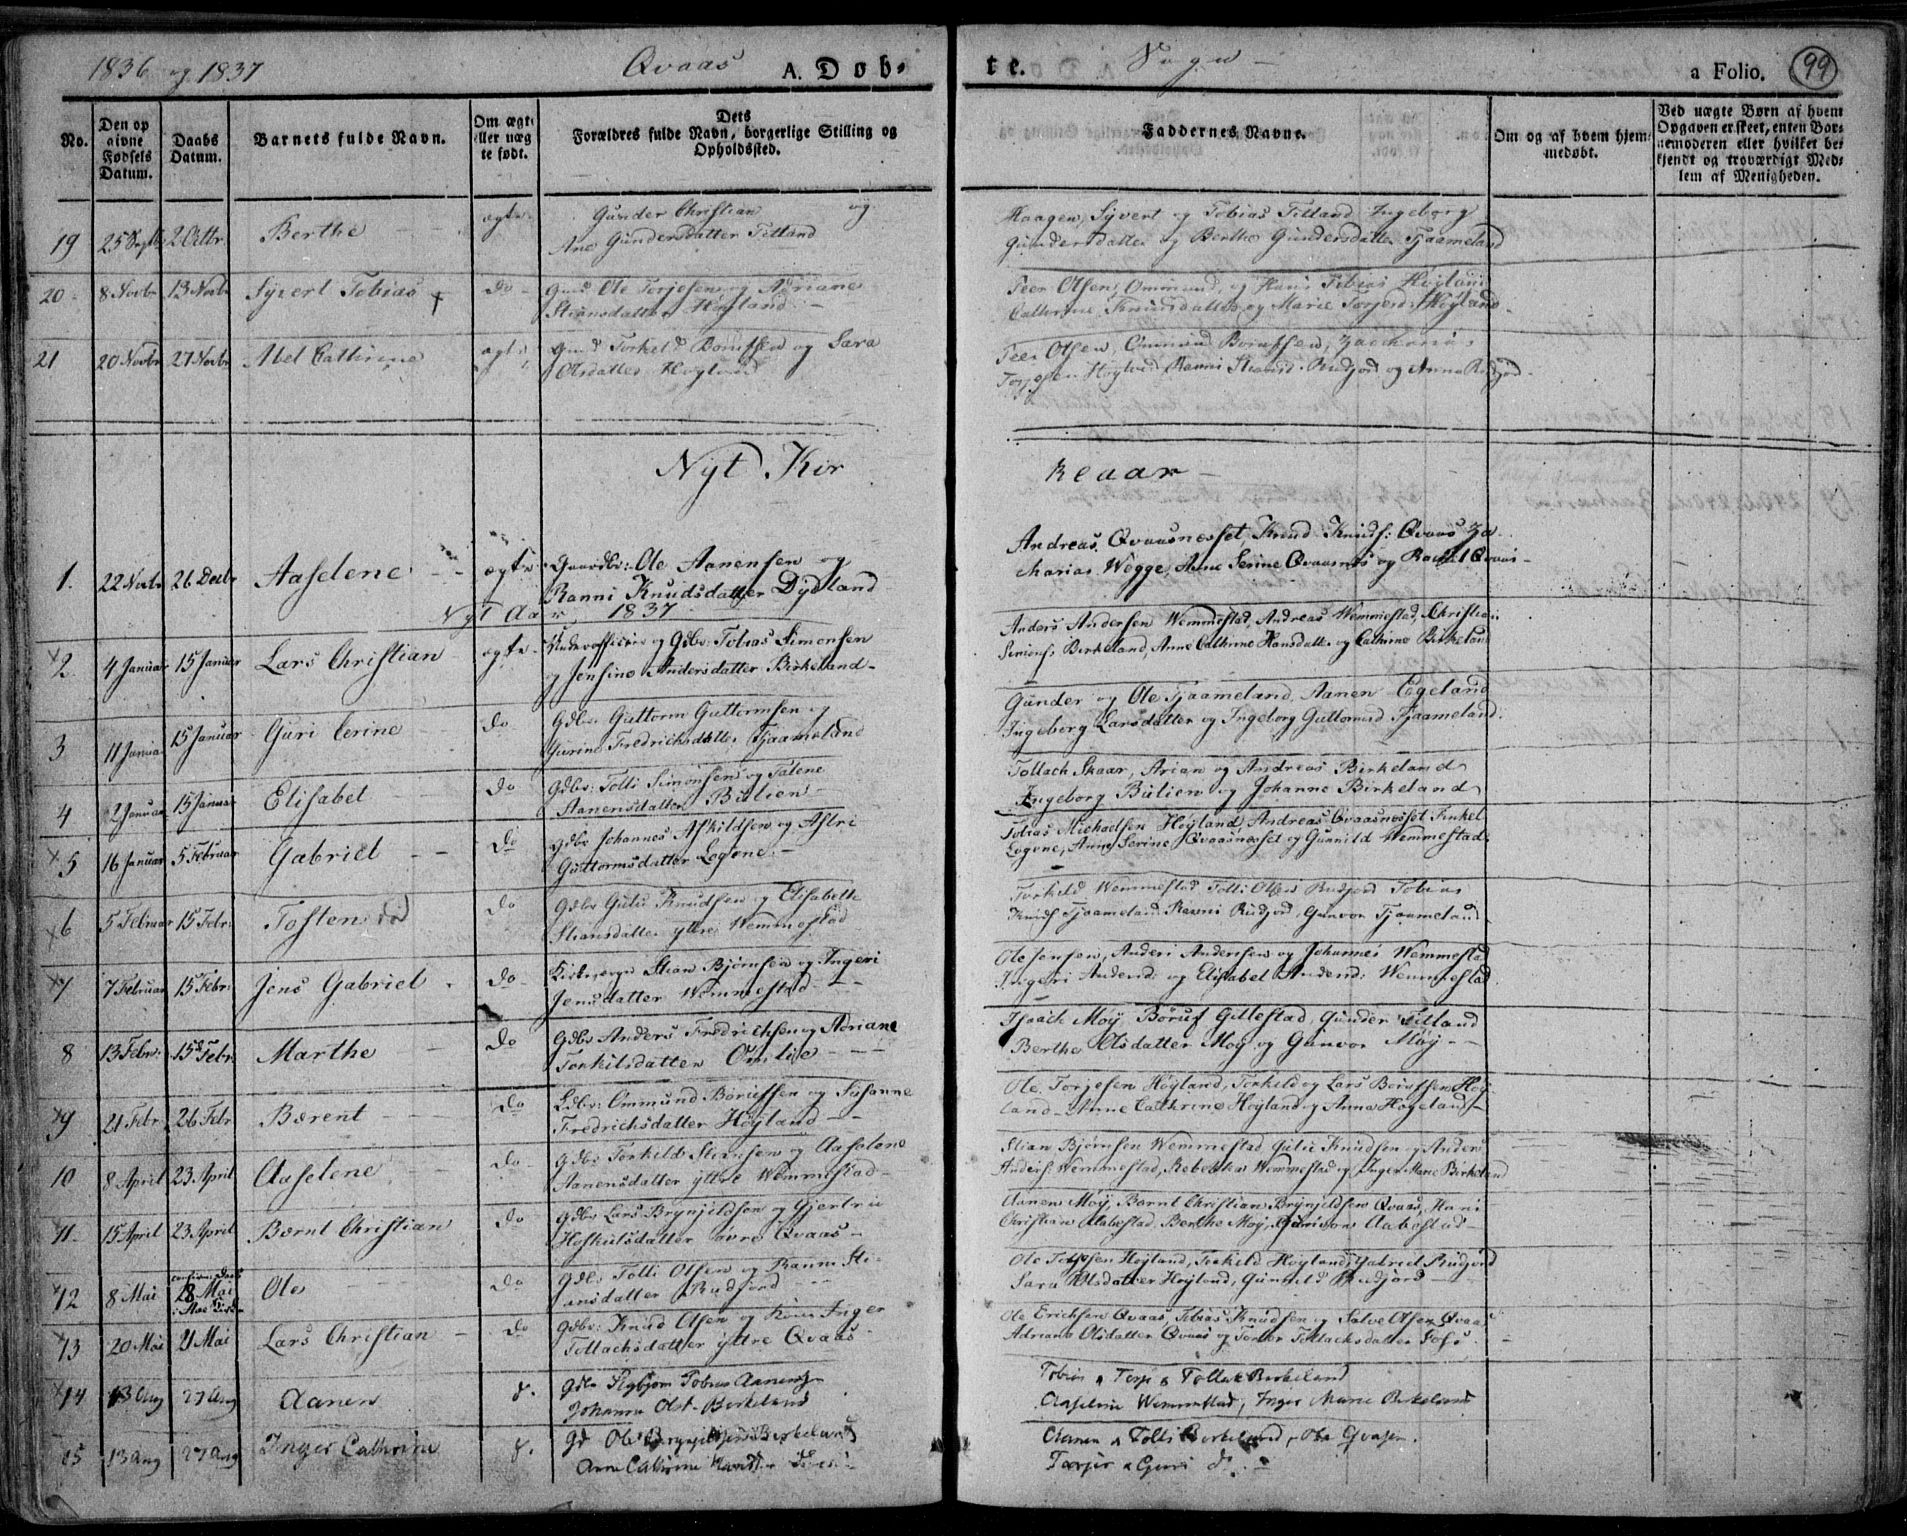 1836 og 1837 Qvaas A. Døb- te. Sogn a Folio. 99
No.
Den op aivne Fødsels Datum.
Daabs Datum.
Barnets fulde Navn.
Om ægte eller uæg te født.
Dets Forældres fulde Navn, borgerlige Stilling og Opholdssted.
Faddernes Navne.
Om og af hvem hjem- medøbt.
Ved uægte Børn af hvem Opgaven er skeet, enten Bar- nemoderen eller hvilket be- kjendt og troværdigt Med- lem af Menigheden.
19 25 Septb 2 Octbr. Berthe ægte Gunder Christian og
Ane Gundersdatter Tetland
Haagen, Syvert og Tobias Tetland Ingeborg
Gundersdatter og Berthe Gundersdatter Tjaameland
20 8 Novbr 13 Novbr Syvert Tobias † do Gmd Ole Torjesen og Adriane
Stiansdatter Høyland
Peer Olsen, Ommund, og Hans Tobias Høiland
Cathrine Knudsdatter og Marie Torjesd: Høyland
21 20 Novbr 27 Novbr Abel Cathrine ægte Gmd Torkel Børufsen og Sara
Olsdatter Høyland
Peer Olsen, Ommund Børufsen, Zacharias
Torjesen Høylnd, Ranni Rudjord og Anna Rudjord
Nyt Kir keaar
1. 22 Novbr 26 Decbr Aaselene ægte Gaardbr: Ole Aanensen og
Ranni Knudsdatter Dydland
Andreas Qvaasnesset, Knud Knuds: Qvaas Za
Marias Wegge, Anne Serine Qvaasnes og Rachel Qvaas
Nyt Aar 1837
2 4 Januar 15 Januar Lars Christian ægte Underofficier og Gdbr: Tobias Simonsen
og Jensine Andersdatter Birkeland
Anders Andersen Wemmestad, Andreas Wemmestad, Christian
Simons: Birkeland, Anne Cathrine Hansdatter og Cathrine Birkeland
3 11 Januar 15 Januar Guri Serine do Gdbr: Guttorm Guttormsen og
Gurine Fredrichsdatter Tjaameland
Gunder og Ole Tjaameland, Aanen Egeland
Ingeborg Larsdatter og Ingeborg Guttormsd Tjaameland.
4 2 Januar 15 Januar Elisabet do Gdbr: Tolli Simonsen og Talene
Aanensdatter Bulien
Tollach Skaar, Arian og Andreas Birkeland
Ingeborg Bulien og Johanne Birkeland
5 16 Januar 5 Februar Gabriel do Gdbr Johannes Askildsen og Astri
Guttormsdatter Logone
Tobias Michaelsen Høyland, Andreas Qvaasnesset Tinkel
Logone, Anne Serine Qvaasnesset og Gunnild Wemmestad
6 5 Februar 15 Febr: Tosten død do Gdbr Guli Knudsen og Elisabeth
Stiansdatter yttre Wemmestad
Torkild Wemmestad Tolli Olsen Rudjord Tobias
Knuds Tjaameland Ranni Rudjord, Gunvor Tjaameland
7 7 Februar 15 Febr: Jens Gabriel do Stian Bjørnsen og Ingeri
Jensdatter Wemmestad
Ole Jensen, Anders Andersen og Johannes Wemmestad
Ingeri Andersd: og Elisabet Andersd: Wemmestad
8 13 Febr: 15 Febr. Marthe do Gdbr Anders Fredrichsen og Adriane
Torkilsdatter Omlie
Isaach Moy, Børuf Gillestad, Gunder Tetland
Berthe Olsdatter Moy og Gunvor Moy
9 21 Febr 26 Febr Bærent do Gdbr: Ommund Børufsen og Sosanne
Fredrichsdatter Høyland
Ole Torjesen Høyland, Torkild og Lars Børufsen Høy
land, Anne Cathrine Høyland og Anna Høyeland
10 8 April 23 April Aaselene do Gdbr Torkild Stiansen og Aaselene
Aanensdatter yttre Wemmestad
Stian Bjørnsen Wemmestad Gulie Knudsen og Anders
Anders: Wemmestad, Rebekka Wemmestad og Inger Marie Birkeland
11 15 April 23 April Bærnt Christian do Gdbr Lars Brynjeldsen og Gjertru
Hoskulsdatter øvre Qvaas
Aanen Moy, Bærnt Christian Brynjeldsen Qvaas, Hans
Christian Aabestad, Berthe Moy, Aabestad
12 8 Mai 28 Mai Ole do Gdbr Tolli Olsen og Ranni Sti-
ansdatter Rudjord
Ole Torjesen Høyland, Torkild Høyland, Gabriel Rudjord
Sara Olsdatter Høyland, Gunnild Rudjord
13 20 Mai 21 Mai Lars Christian do Gdbr: Knud Olsen og Kone Inger
Tollachsdatter yttre Qvaas
Ole Erichsen Qvaas, Tobias Knudsen og Salve Olsen Qvaas
Adriane Olsdatter Qvaas og Tollachsdatter Fos
14 13 Aug 27 Aug Aanen d. Gdbr Tobias Aanensen
Johanne Olsd. Berkeland
Tobias, Terje & Tollak Berkeland
Aaselene Wemmestad, Inger Marie Berkeland
15 13 Aug 27 Aug Inger Cathrine d. Gd Ole Brynjeldsen Berkeland
Anne Cathrine
Aanen & Tolli Berkeland, Ole
Torger & Guri d.